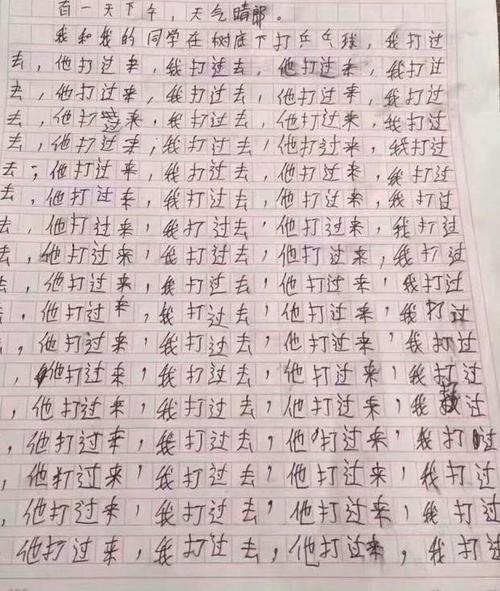 有一天下午，天气晴郎。
我和我的同学在树底下打乒乓球，我打过
去，他打过来，我打过去，他打过来，我打过
去，他打过来，我打过去，他打过来，我打过
去，他打过来，我打过去，他打过来，我打过
去，他打过来；我打过去，他打过来，我打过
去；他打过来，我打过去，他打过来，我打过
去，他打过来，我打过去，他打过来，我打过
去，他打过来，我打过去，他打过来，我打过
去，他打过来，我打过去，他打过来，我打过
去，他打过来，我打过去，他打过来，我打过
去，他打过来，我打过去，他打过来，我打过
去，他打过来，我打过去，他打过来，我打过
，他打过来，我打过去，他打过来，我打过
，他打过来，我打过去，他打过来，我打过
，他打过来，我打过去，他打过来，我打过
，他打过来，我打过去，他打过来，我打过
，他打过来，我打过去，他打过来，我打过
他打过来，我打过去，他打过来，我打过